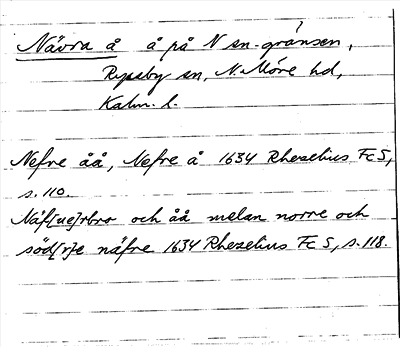 Nävra å å på N sn-gränsen,
Ryssby sn, N. Möre hd,
Kalm. l.
Nefre åå, Nefre å 1634 Rhezelius Fc5,
s. 110.
Näf[ue]rbro och åå melan norre och
söd[r]e näfre 1634 Rhezelius Fc 5, s. 118.